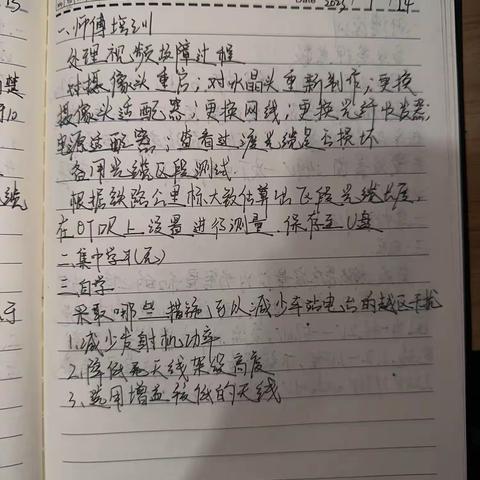 Date 2023 / 1 / 14
一、师傅培训
处理视频故障过程
对摄像头重启；对水晶头重新制作；更换
摄像头适配器；更换网线；更换光纤收发器；
电源适配器；查看过渡光缆是否损坏
备用光缆区段测试
根据铁路公里标大致估算出区段光缆长度，
在OTDR上设置进行测量，保存至U盘
二、集中学习(无)
三、自学
采取哪些措施可以减少车站电台的越区干扰
1、减少发射机功率
2、降低天线架设高度
3、选用增益较低的天线